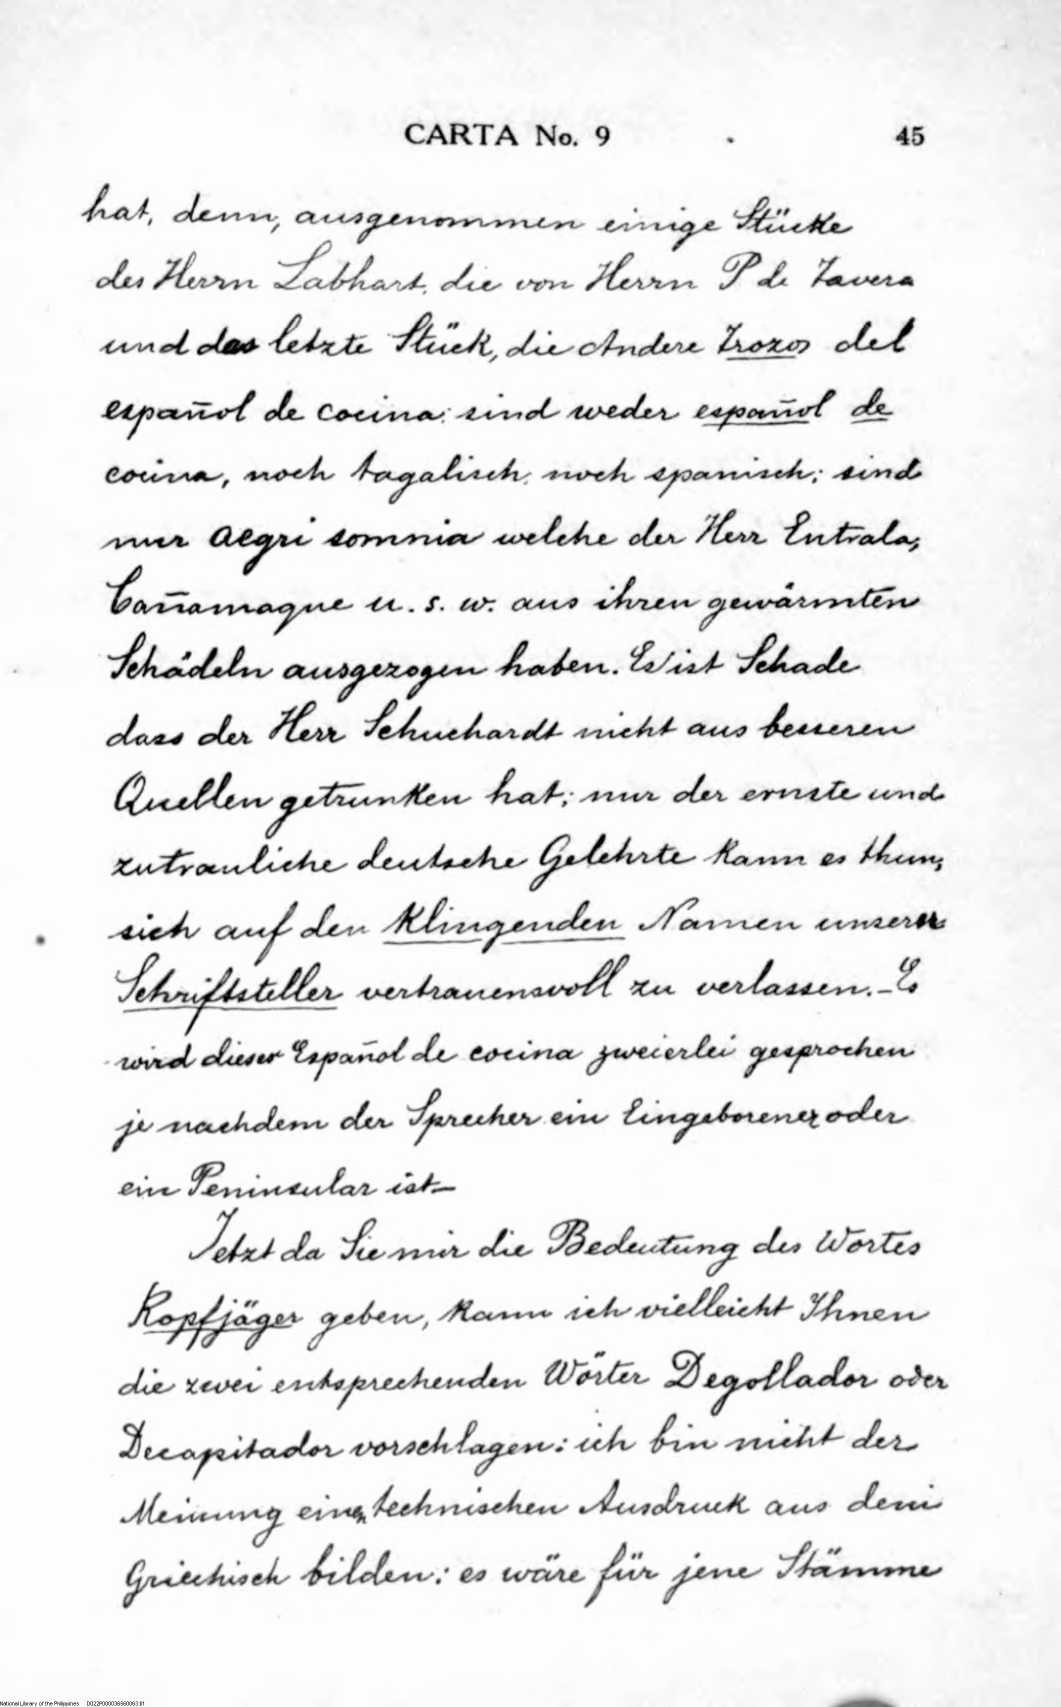 CARTA No. 9 45
hat, denn, ausgenommen einige Stücke
des Herrn Labhart, die von Herrn P de Tavera
und das letzte Stück, die Andere Trozos del
español de cocina: sind weder español de
cocina, noch tagalisch, noch spanisch; sind
nur aegri somnia welche der Herr Entrala,
Cañamaque u. s. w. aus ihren gewärmten
Schädeln ausgezogen haben. Es ist Schade
dass der Herr Schuchardt nicht aus besseren
Quellen getrunken hat; nur der ernste und
zutrauliche deutsche Gelehrte kann es thun,
sich auf den klingenden Namen unserer
Schriftsteller vertrauensvoll zu verlassen. – Es
wird dieser Español de cocina zweierlei gesprochen
je nachdem der Sprecher ein Eingeborener oder
ein Peninsular ist –
Jetzt da Sie mir die Bedeutung des Wortes
Kopfjäger geben, kann ich vielleicht Ihnen
die zwei entsprechenden Wörter Degollador oder
Decapitador vorschlagen: ich bin nicht der
Meinung einen technischen Ausdruck aus dem
Griechisch bilden: es wäre für jene Stämme
National Library of the Philippines